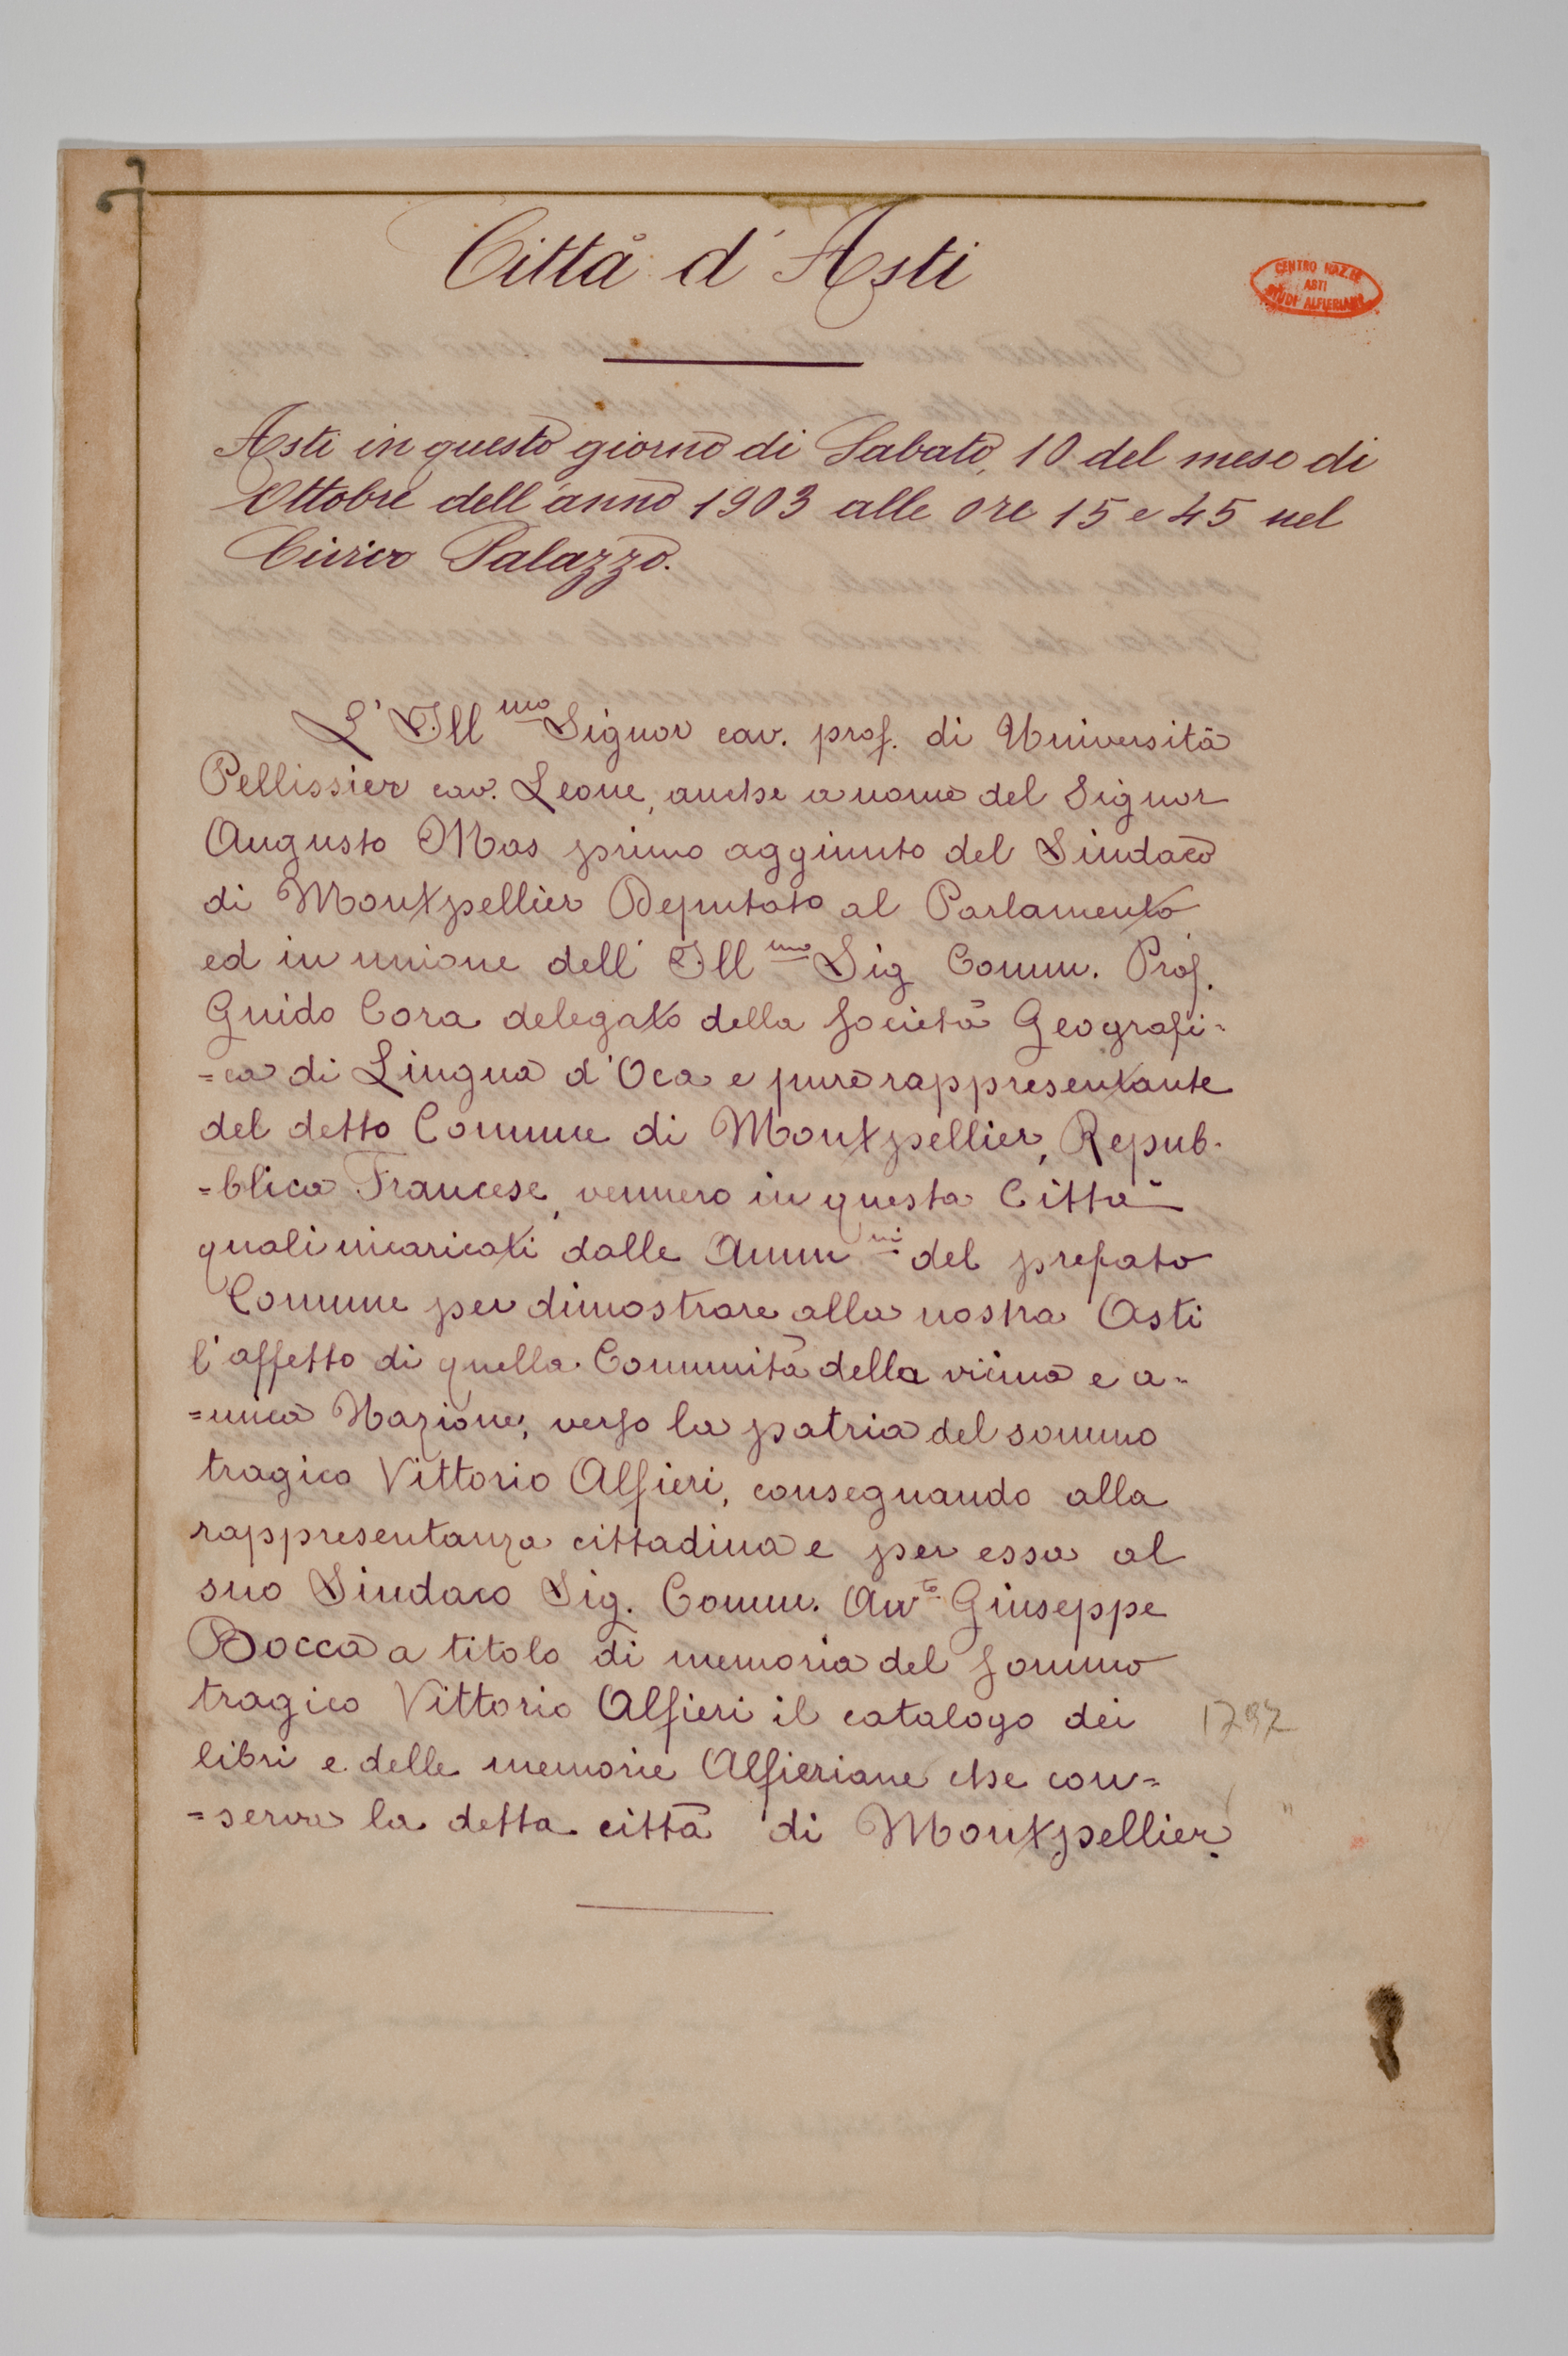 Città d'Asti
CENTRO NAZ.LE
ASTI
STUDI ALFIERIANI
Asti in questo giorno di Sabato, 10 del mese di
Ottobre dell'anno 1903 alle ore 15 e 45 nel
Civico Palazzo.
L'Ill.mo Signor cav. prof. di Università
Pellissier cav. Leone, anche a nome del Signor
Augusto Mas primo aggiunto del Sindaco
di Montpellier Deputato al Parlamento
ed in unione dell'Ill.mo Sig Comm. Prof.
Guido Cora delegato della Società Geografi-
=ca di Lingua d'Oca e pure rappresentante
del detto Comune di Montpellier, Repub-
=blica Francese, vennero in questa Città
quali incaricati dalle Amm.ni del prefato
Comune per dimostrare alla nostra Asti
l'affetto di quella Comunità della vicina e a-
=mica Nazione, verso la patria del sommo
tragico Vittorio Alfieri, consegnando alla
rappresentanza cittadina e per essa al
suo Sindaco Sig. Comm. Avv.to Giuseppe
Bocca a titolo di memoria del sommo
tragico Vittorio Alfieri il catalogo dei 1797
libri e delle memorie Alfieriane che con=
=serva la detta città di Montpellier.